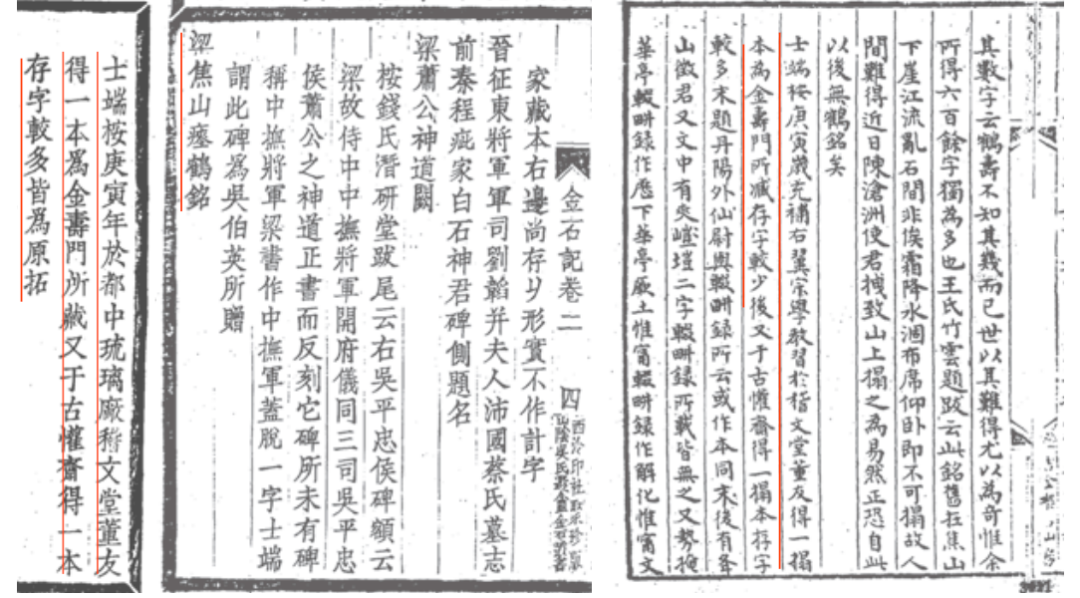 其數字云鶴壽不知其幾而已世以其難得尤以為奇惟余
所得六百餘字獨為多也王氏竹雲題跋云此銘舊在焦山
下崖江流亂石間非俟霜降水涸布席仰卧即不可搨故人
間難得近日陳滄洲使君拽致山上搨之為易然正恐自此
以後無鶴銘矣
士端桉庚寅歲充補右翼宗學教習於稽文堂董友得一搨
本為金壽門所藏存字較少後又于古懽齋得一搨本存字
較多末題丹陽外仙尉與輟畊錄所云或作本同末後有夅
山徵君又文中有爽塏二字輟畊錄所載皆無之又勢掩
華亭輟畊錄作厯下華亭厥土惟甯輟畊錄作解化惟甯文
金石記卷二
四
西泠印社
山陰吳氏金石
家藏本右邊尚存刂形實不作計字
晉征東將軍軍司劉韜并夫人沛國蔡氏墓志
前秦程疵家白石神君碑側題名
梁蕭公神道闕
桉錢氏潛研堂跋尾云右吳平忠侯碑額云
梁故侍中中撫將軍開府儀同三司吳平忠
侯蕭公之神道正書而反刻它碑所未有碑
稱中撫將軍梁書作中撫軍蓋脫一字士端
謂此碑為吳伯英所贈
梁焦山瘞鶴銘
士端桉庚寅年於都中琉璃廠稽文堂董友
得一本爲金壽門所藏又于古懽齋得一本
存字較多皆爲原拓